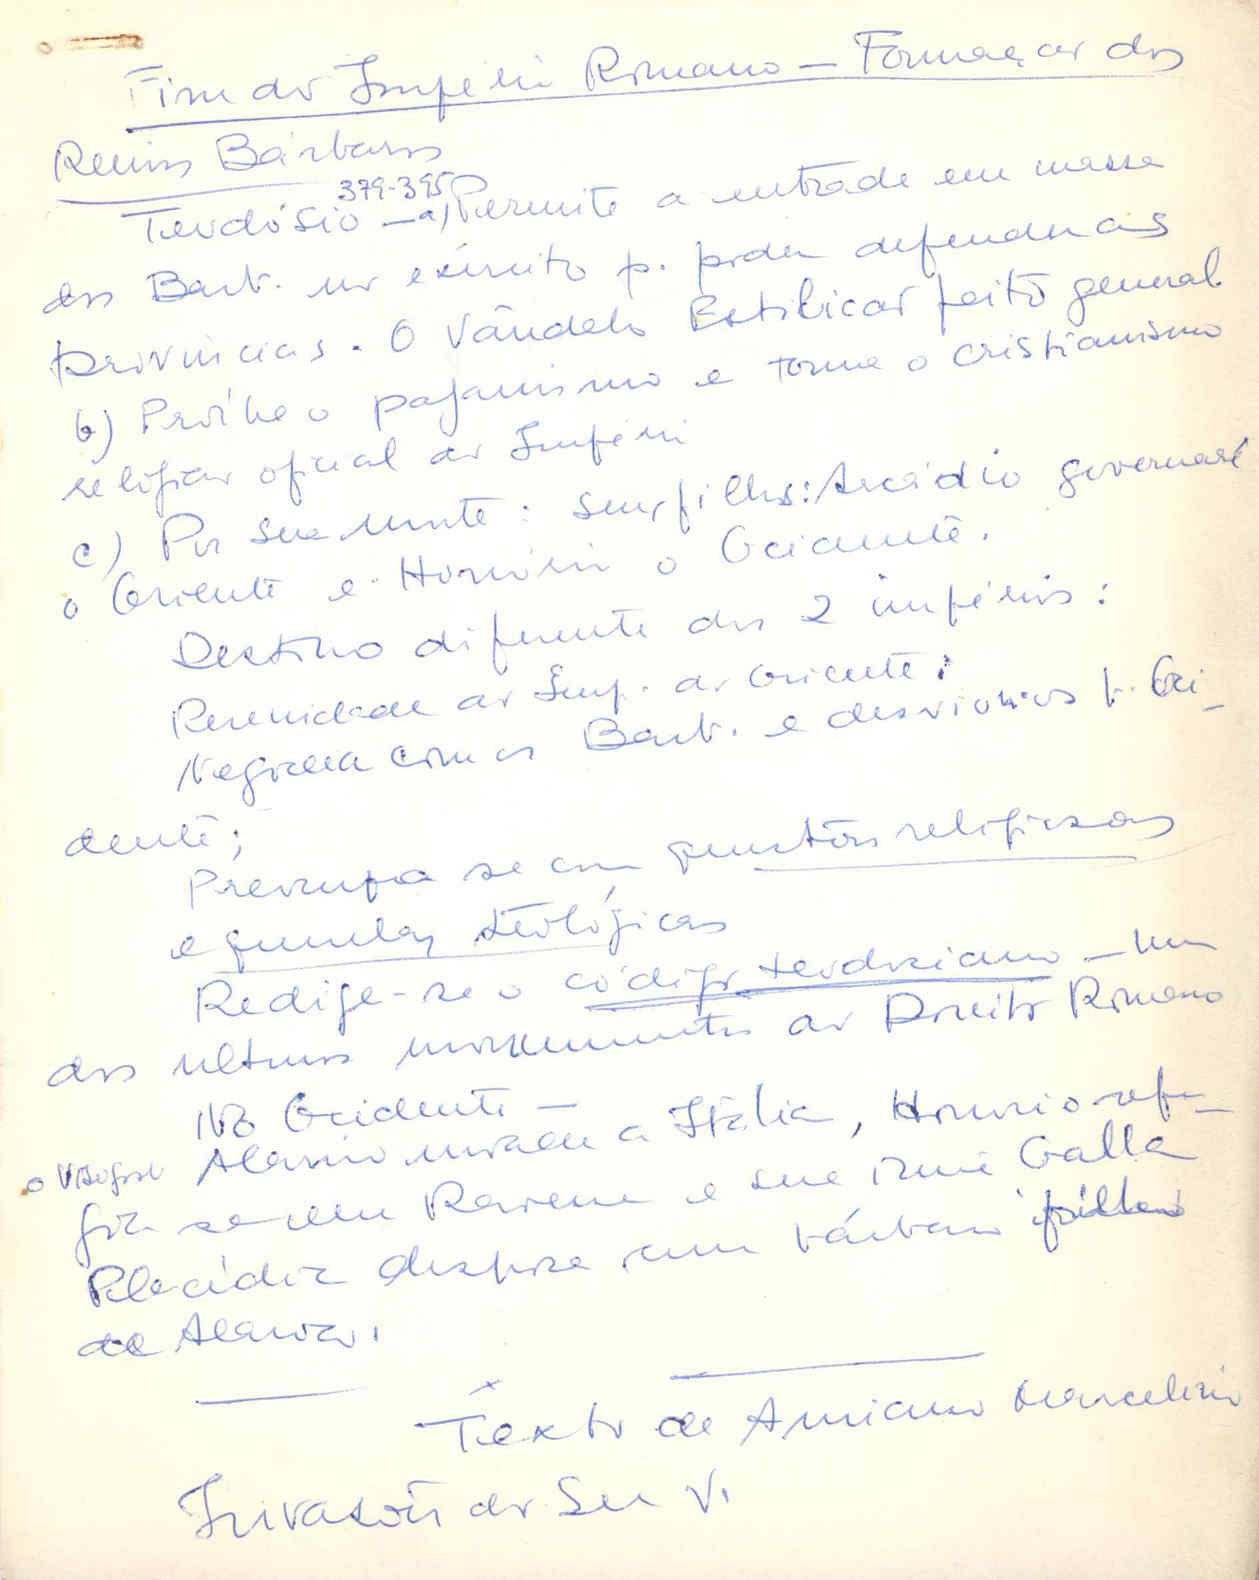 Fim do Império Romano – Formação dos
Reinos Bárbaros
379-395
Teodósio – a) Permite a entrada em massa
dos Barb. no exército p. poder defender as
províncias. O Vândalo Estilicão feito general
b) Proíbe o paganismo e torna o cristianismo
religião oficial do Império
c) Por sua morte: seus filhos: Arcádio governará
o Oriente e Honório o Ocidente.
Destino diferente dos 2 impérios:
Perenidade do Imp. do Oriente:
Negocea com os Barb. e desvia-os p. Oci-
dente;
Preocupa se com questões religiosas
e querelas teológicas
Redige-se o código teodosiano – um
dos ultimos monumentos do Direito Romano
No Ocidente –
o Visigodo Alarico invade a Itália, Honorio refu-
gia se em Ravena e sua irmã Galla
Placídia desposa um bárbaro
de Alarico.
x
Texto de Amiano Marcelino
Invasões do Sec V.